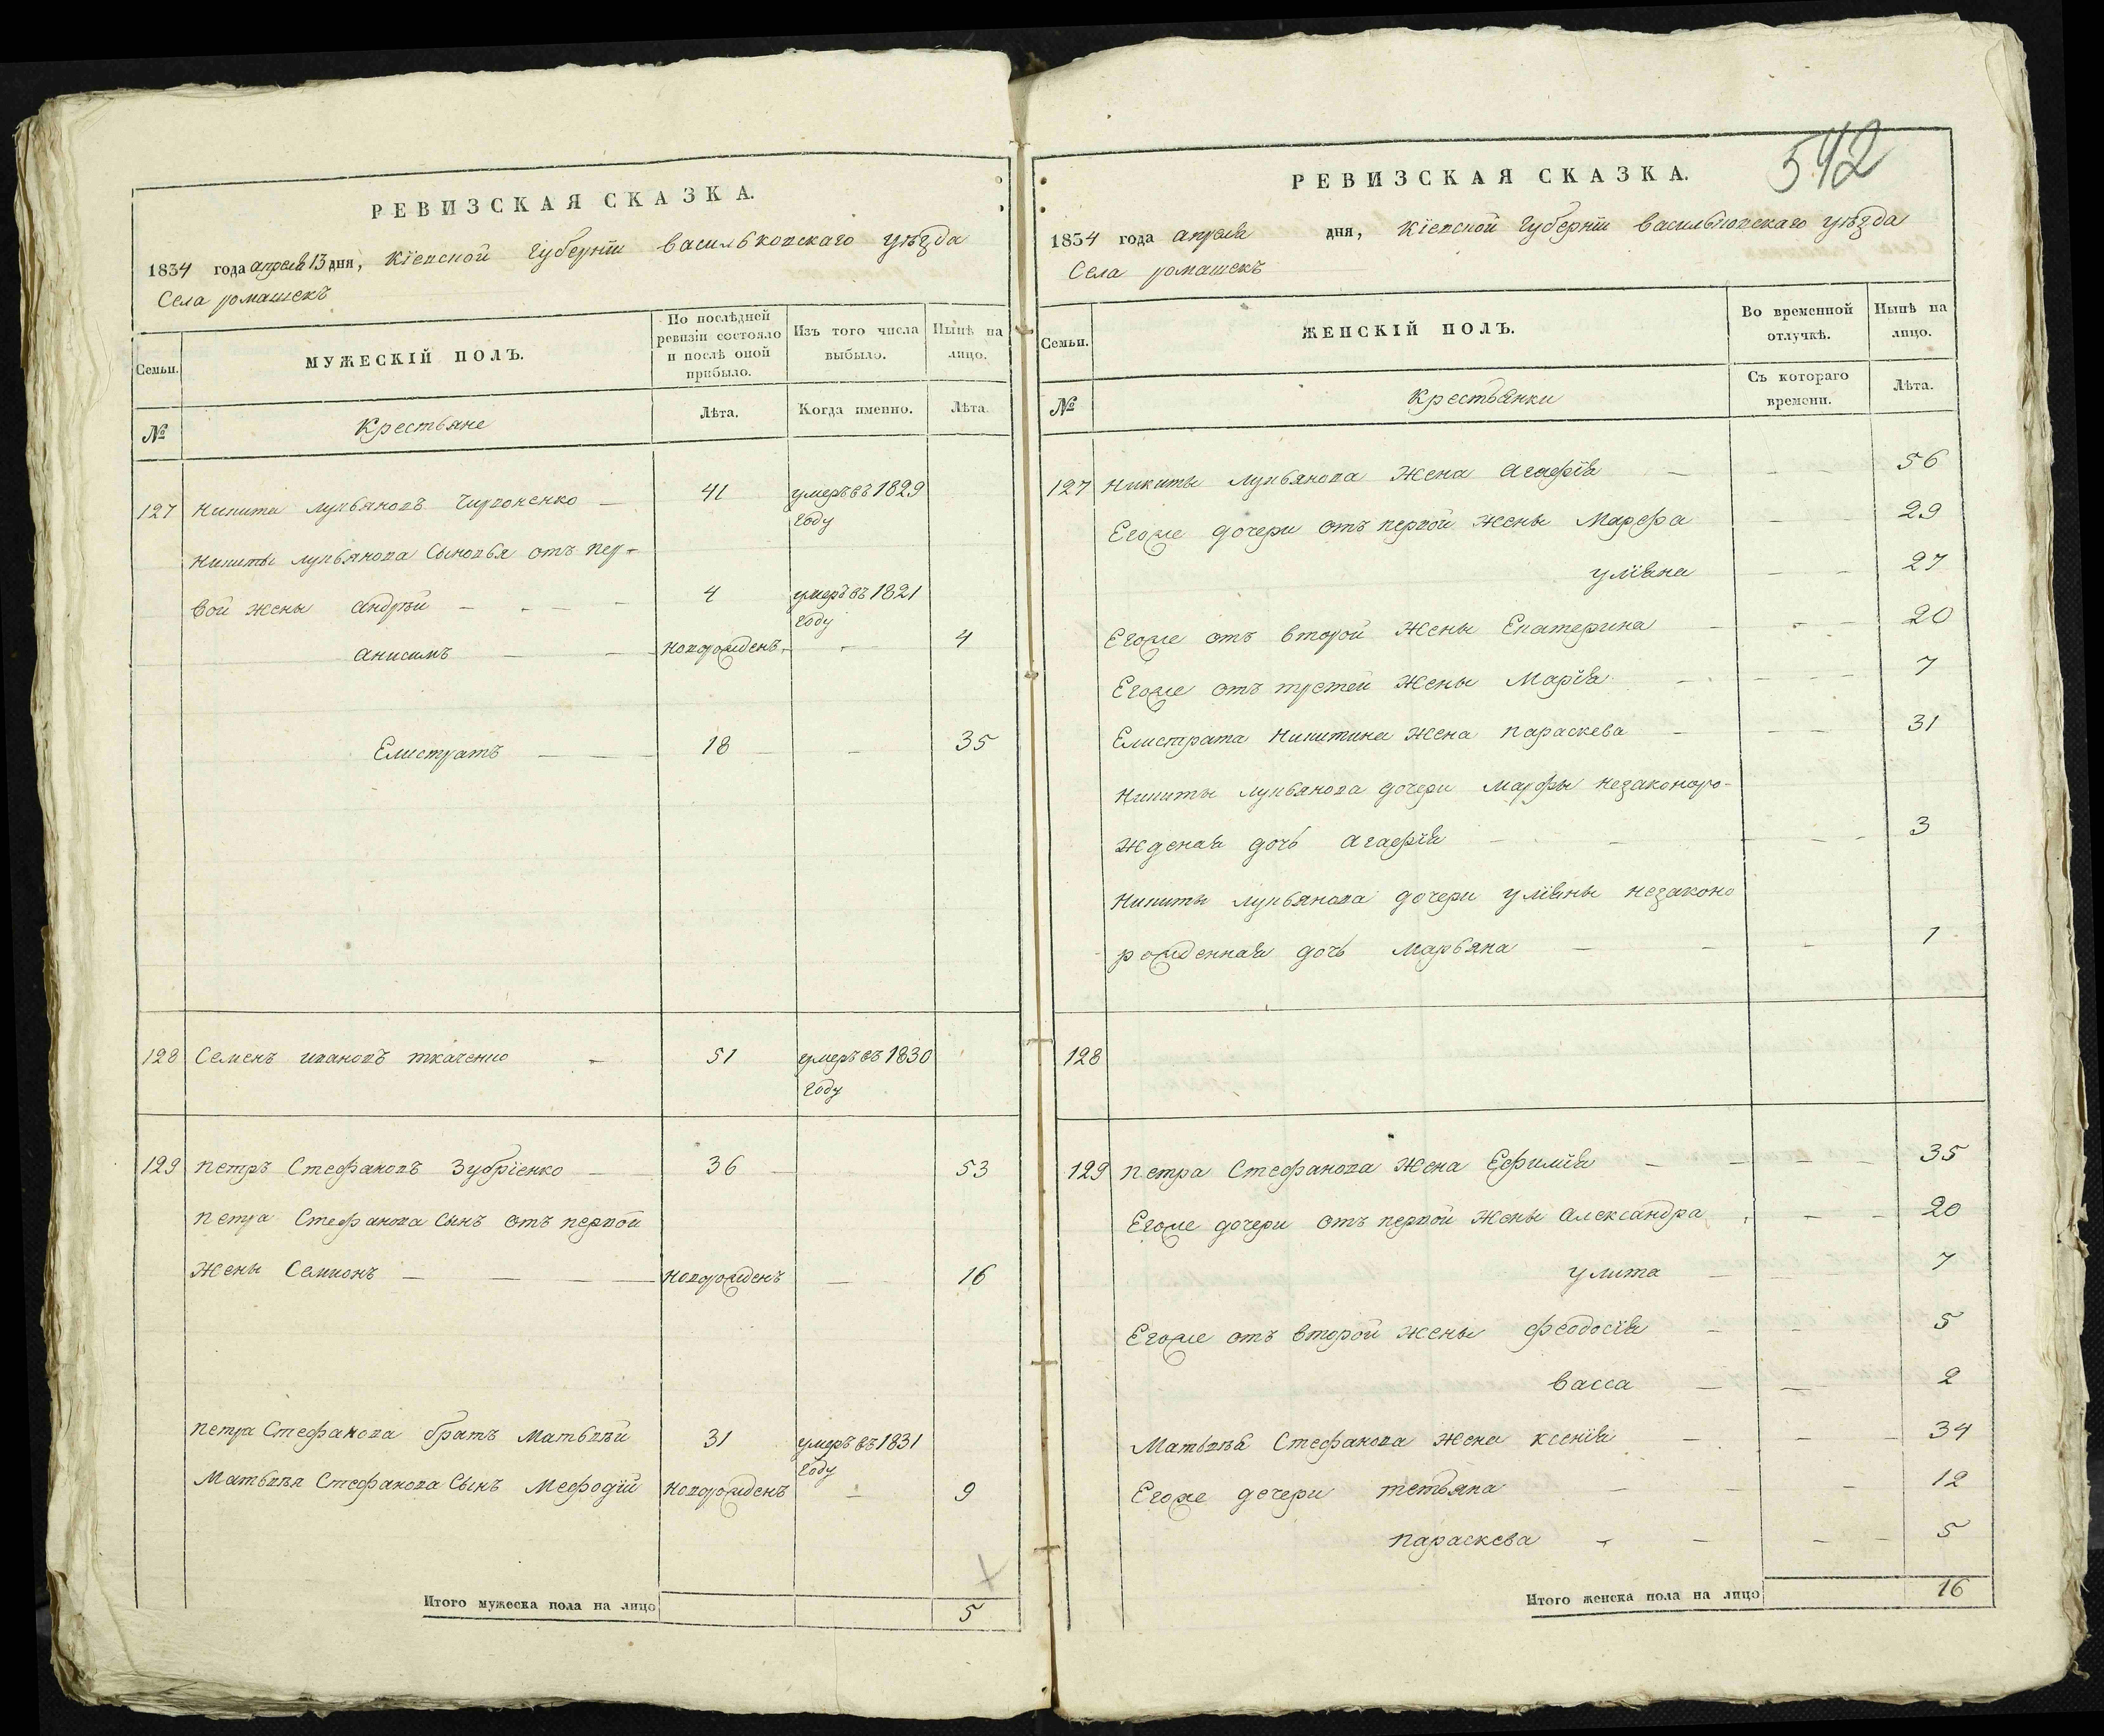 РЕВИЗСКАЯ СКАЗКА.
1834 года апреля 13 дня, Кіевской Губерніи Васильковскаго уѣзда
Села ромашекъ
Семьи.
МУЖЕСКІЙ ПОЛЪ.
По послѣдней ревизіи состояло и послѣ оной прибыло.
Изъ того числа выбыло.
Нынѣ на лицо.
№
Крестьяне
Лѣта.
Когда именно.
Лѣта.
127 Никита Лукьяновъ — 41 умеръ въ 1829 году
Никиты Лукьянова Сыновья отъ пер-
вой жены андрѣй — 4 умеръ въ 1821 году
анисимъ — новорожденъ — 4
Елистратъ — 18 — 35
128 Семенъ ивановъ ткаченко — 51 умеръ въ 1830 году
129 петръ Стефановъ Зубріенко — 36 — 53
петра Стефанова Сынъ отъ первой
жены Семионъ — новорожденъ — 16
петра Стефанова братъ Матьвѣй 31 умеръ въ 1831 году
Матьвѣя Стефанова Сынъ Мефодій новорожденъ — 9
Итого мужеска пола на лицо 5
542
РЕВИЗСКАЯ СКАЗКА.
1834 года апреля дня, Кіевской Губерніи Васильковскаго уѣзда
Села ромашекъ
Семьи.
ЖЕНСКІЙ ПОЛЪ.
Во временной отлучкѣ.
Нынѣ на лицо.
№
Крестьянки
Съ котораго времени.
Лѣта.
127 Никиты Лукьянова Жена — 56
Егоже дочери отъ первой жены Марфа — 29
улїяна — 27
Егоже отъ второй жены Екатерина — 20
Егоже отъ третей жены Марїя — 7
Елистрата Никитина жена параскева — 31
Никиты Лукьянова дочери марфы незаконоро-
жденая дочь агафїя — 3
Никиты Лукьянова дочери улїяны незаконо
рожденная дочь Марьяна — 1
128
129 петра Стефанова жена Ефимїя — 35
Егоже дочери отъ первой жены александра — 20
улита — 7
Егоже отъ второй жены феодосїя — 5
васса — 2
Матьвѣя Стефанова жена ксенїя — 34
Егоже дочери тетьяна — 12
параскева — 5
Итого женска пола на лицо 16